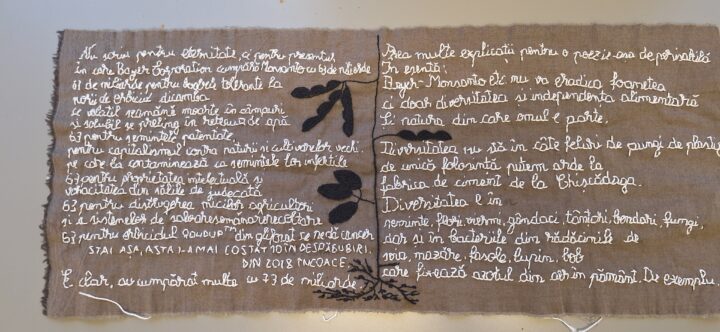 Nu scriu pentru eternitate, ci pentru prezentul
în care Bayer Corporation cumpără Monsanto cu 63 de miliarde
61 de miliarde pentru toleranți la
norii de erbicid dicamba
se volatil moarte în câmpuri
și solubil se preling în rețeaua de apă
63 pentru semințele patentate,
pentru capitalismul contra naturii și cultivatorilor vechi,
pe care la contaminează cu semințele lor infertile
63 pentru proprietatea intelectuală și
voracitatea din sălile de judecată
63 pentru distrugerea micilor agricultori
și a sistemelor de
63 pentru erbicidul ROUDUP™ din glifosat se nedă cancer
STAI AȘA, ASTA I-A MAI COSTAT 10 ÎN DESPĂGUBIRI
DIN 2018 ÎNCOACE.
E clar, au cumpărat multe cu 73 de miliarde.
Prea multe explicații pentru o poezie-așa de perisabilă
În esență:
Bayer-Monsanto etc nu va eradica foametea
ci doar diversitatea și independența alimentară
Și natura din care omul e parte.
Diversitatea nu stă în câte feluri de pungi de plastic
de unică folosință putem arde la
fabrica de ciment de la Chișcădaga.
Diversitatea e în
semințe, flori, viermi, gândaci, țânțari, bondari, fungi,
dar și în bacteriile din rădăcinile de
soia, mazăre, fasole, lupin, bob
care fixează azotul din aer în pământ. De exemplu.